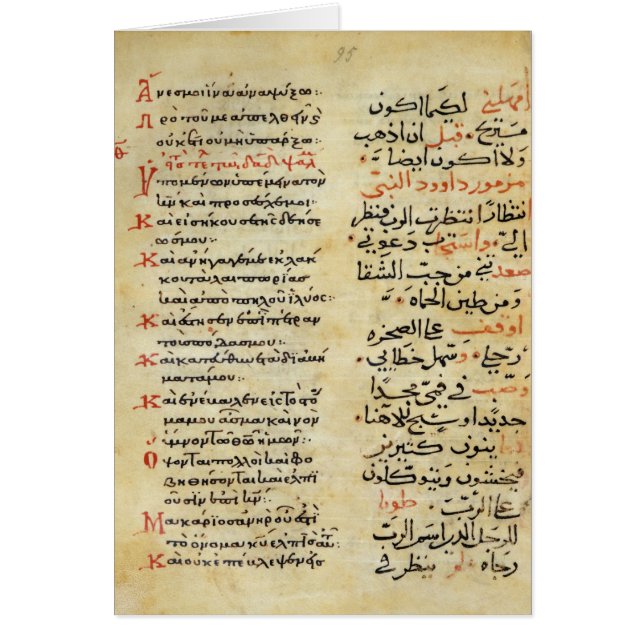 95
Ἄνες μοι ἵνα ἀναψύξω:·
Πρὸ τοῦ με ἀπελθεῖν
οὐκέτι οὐ μὴ ὑπάρξω:·
τῷ δαδ ψαλ
Ὑπομένων ὑπέμεινα τὸν
κν καὶ προσέσχε μοι:·
Καὶ εἰσήκουσε τῆς δεήσε
ώς μου:·
Καὶ ἀνήγαγέ με ἐκ λάκ
κου ταλαιπωρίας
καὶ ἀπὸ πηλοῦ ἰλύος:·
Καὶ ἔστησεν ἐπὶ πέτραν
τοὺς πόδας μου:·
Καὶ κατεύθυνε τὰ διαβή
ματά μου:·
Καὶ ἐνέβαλεν εἰς τὸ στό
μα μου ἆσμα καινὸν
ὕμνον τῷ θῶ ἡμῶν:·
Ὄψονται πολλοὶ καὶ φο
βηθήσονται καὶ ἐλπι
οῦσιν ἐπὶ κν:·
Μακάριος ἀνὴρ οὗ ἐστὶ
τὸ ὄνομα κυ ἐλπὶς αὐτοῦ:·
Καὶ οὐκ ἐπέβλεψεν εἰς
امهلني لكيما اكون
مستريح قبل ان اذهب
ولا اكون ايضا
مزمور داوود النبي
انتظارا انتظرت الرب فنظر
الي واستجاب دعوتي
اصعدني من جب الشقا
ومن طين الحماه
اوقف على الصخره
رجلي وسهل خطايي
وصب في فمي مجدا
جديدا وتسبيح لالاهنا
ينون كثيرين
فيخشون ويتوكلون
على الرب طوبا
للرجل الذي اسم الرب
رجاه لم ينظر في